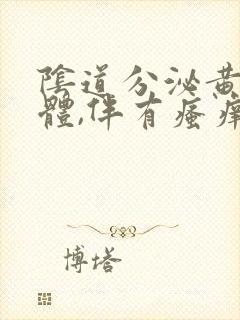 陰道分泌黃
體,伴有瘙癢
博塔